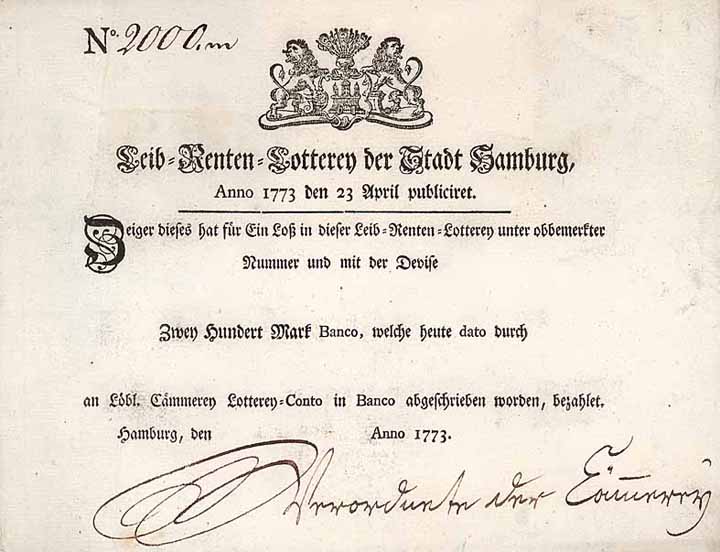 No. 2000.m
Leib-Renten-Lotterey der Stadt Hamburg,
Anno 1773 den 23 April publiciret.
Zeiger dieses hat für Ein Loß in dieser Leib-Renten-Lotterey unter obbemerkter
Nummer und mit der Devise
Zwey Hundert Mark Banco, welche heute dato durch
an Löbl. Cämmerey Lotterey-Conto in Banco abgeschrieben worden, bezahlet.
Hamburg, den Anno 1773.
Verordnete der Cämmerey